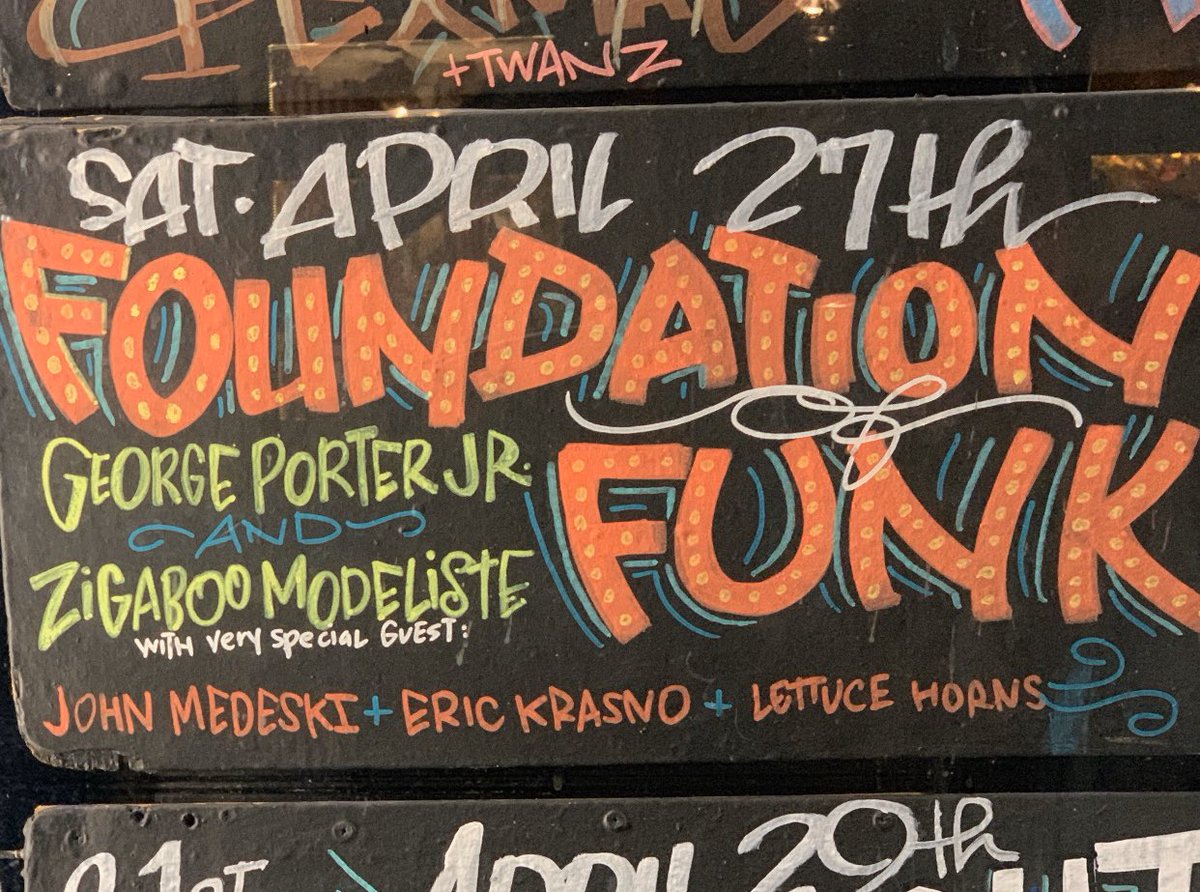 +TWANZ
SAT. APRIL 27th
FOUNDATION
FUNK
GEORGE PORTER JR.
AND
ZIGABOO MODELISTE
WITH very special GUEST:
JOHN MEDESKI + ERIC KRASNO + LETTUCE HORNS
APRIL 29th